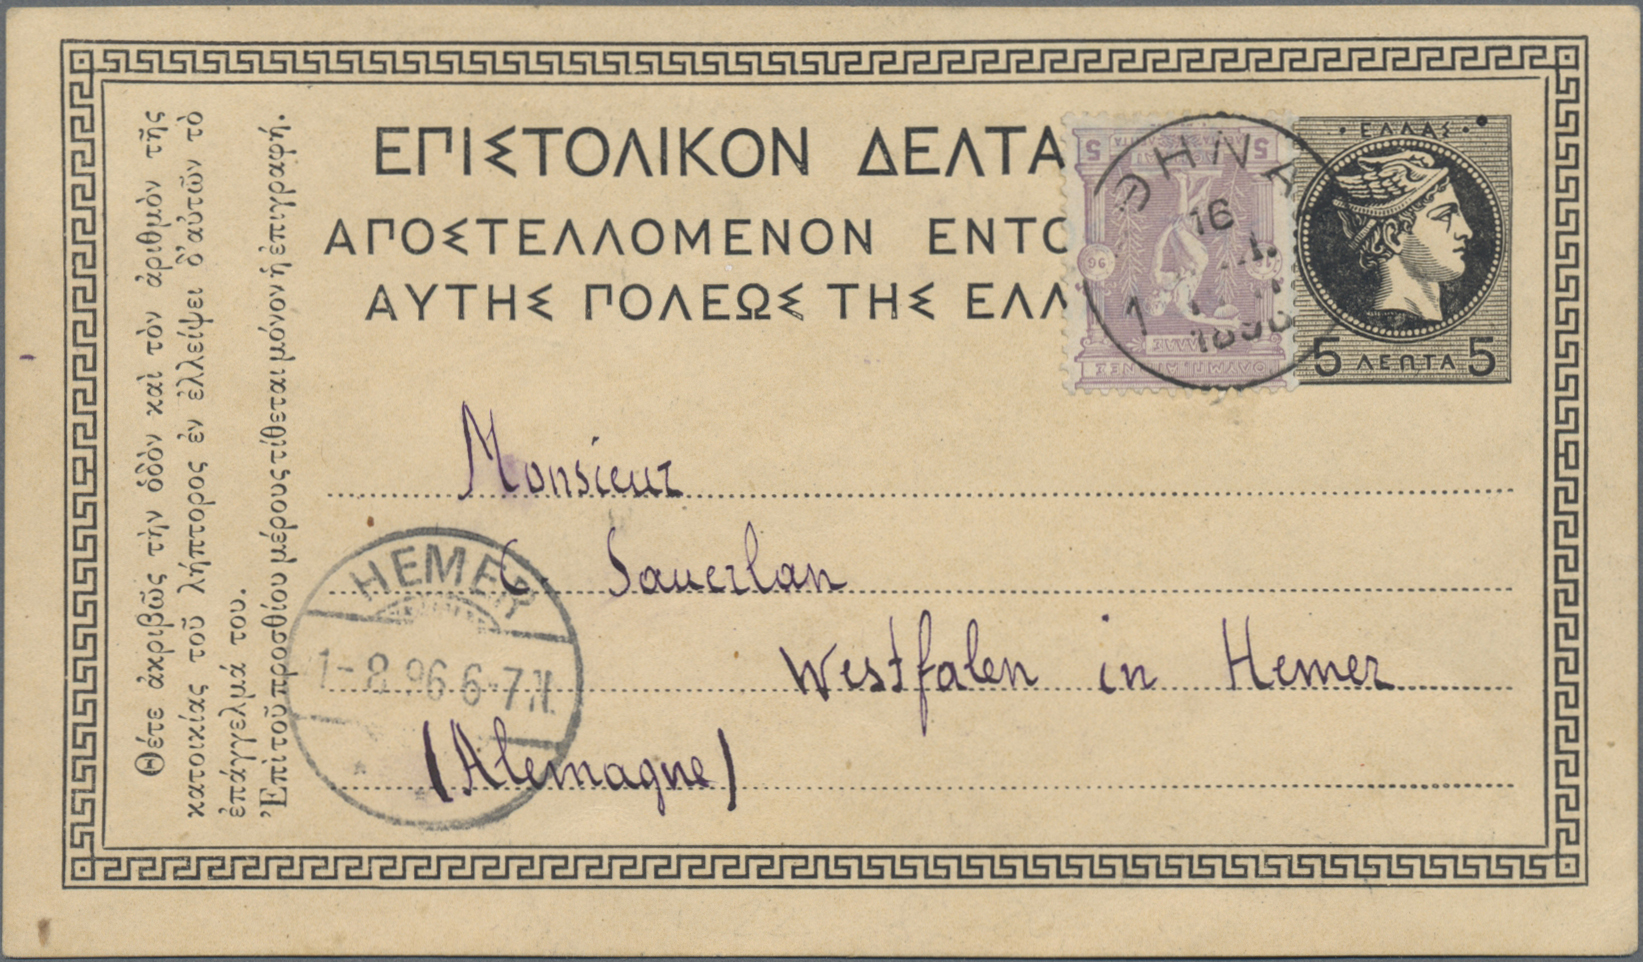 ΕΠΙΣΤΟΛΙΚΟΝ ΔΕΛΤΑ
ΑΠΟΣΤΕΛΛΟΜΕΝΟΝ ΕΝΤΟ
ΑΥΤΗΣ ΠΟΛΕΩΣ ΤΗΣ ΕΛΛ
Θέτε ἀκριβῶς τὴν ὁδὸν καὶ τὸν ἀριθμὸν τῆς
κατοικίας τοῦ λήπτορος ἐν ἐλλείψει δ'αὐτῶν τὸ
ἐπάγγελμά του.
Ἐπὶ τοῦ προσθίου μέρους τίθεται μόνον ἡ ἐπιγραφή.
5 5
96
ΟΛΥΜΠ. ΑΓΩΝΕΣ
ΘΗΝΑ
16
1
1896
ΕΛΛΑΣ
5 ΛΕΠΤΑ 5
Monsieur
C. Sauerlan
Westfalen in Hemer
(Alemagne)
HEMER
1-8 96 6-7 N.